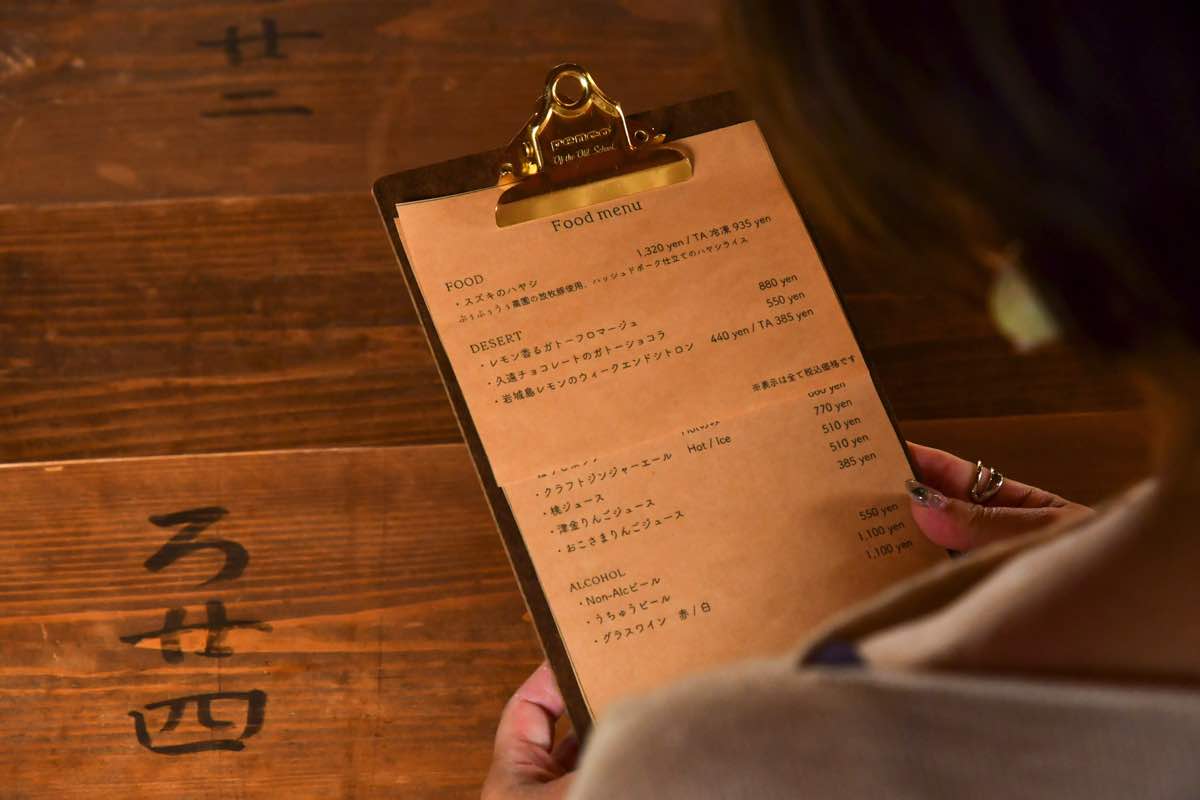 廿
二
PENCO
Of the Old School
Food menu
FOOD
・スズキのハヤシ 1,320 yen / TA 冷凍 935 yen
ぶぅふぅうぅ農園の放牧豚使用、ハッシュドポーク仕立てのハヤシライス
DESERT
・レモン香るガトーフロマージュ 880 yen
・久遠チョコレートのガトーショコラ 550 yen
・岩城島レモンのウィークエンドシトロン 440 yen / TA 385 yen
※表示は全て税込価格です
Hot / Ice
・クラフトジンジャーエール 770 yen
・桃ジュース 510 yen
・津金りんごジュース 510 yen
・おこさまりんごジュース 385 yen
ALCOHOL
・Non-Alcビール 550 yen
・うちゅうビール 1,100 yen
・グラスワイン 赤 / 白 1,100 yen
ろ
廿
四